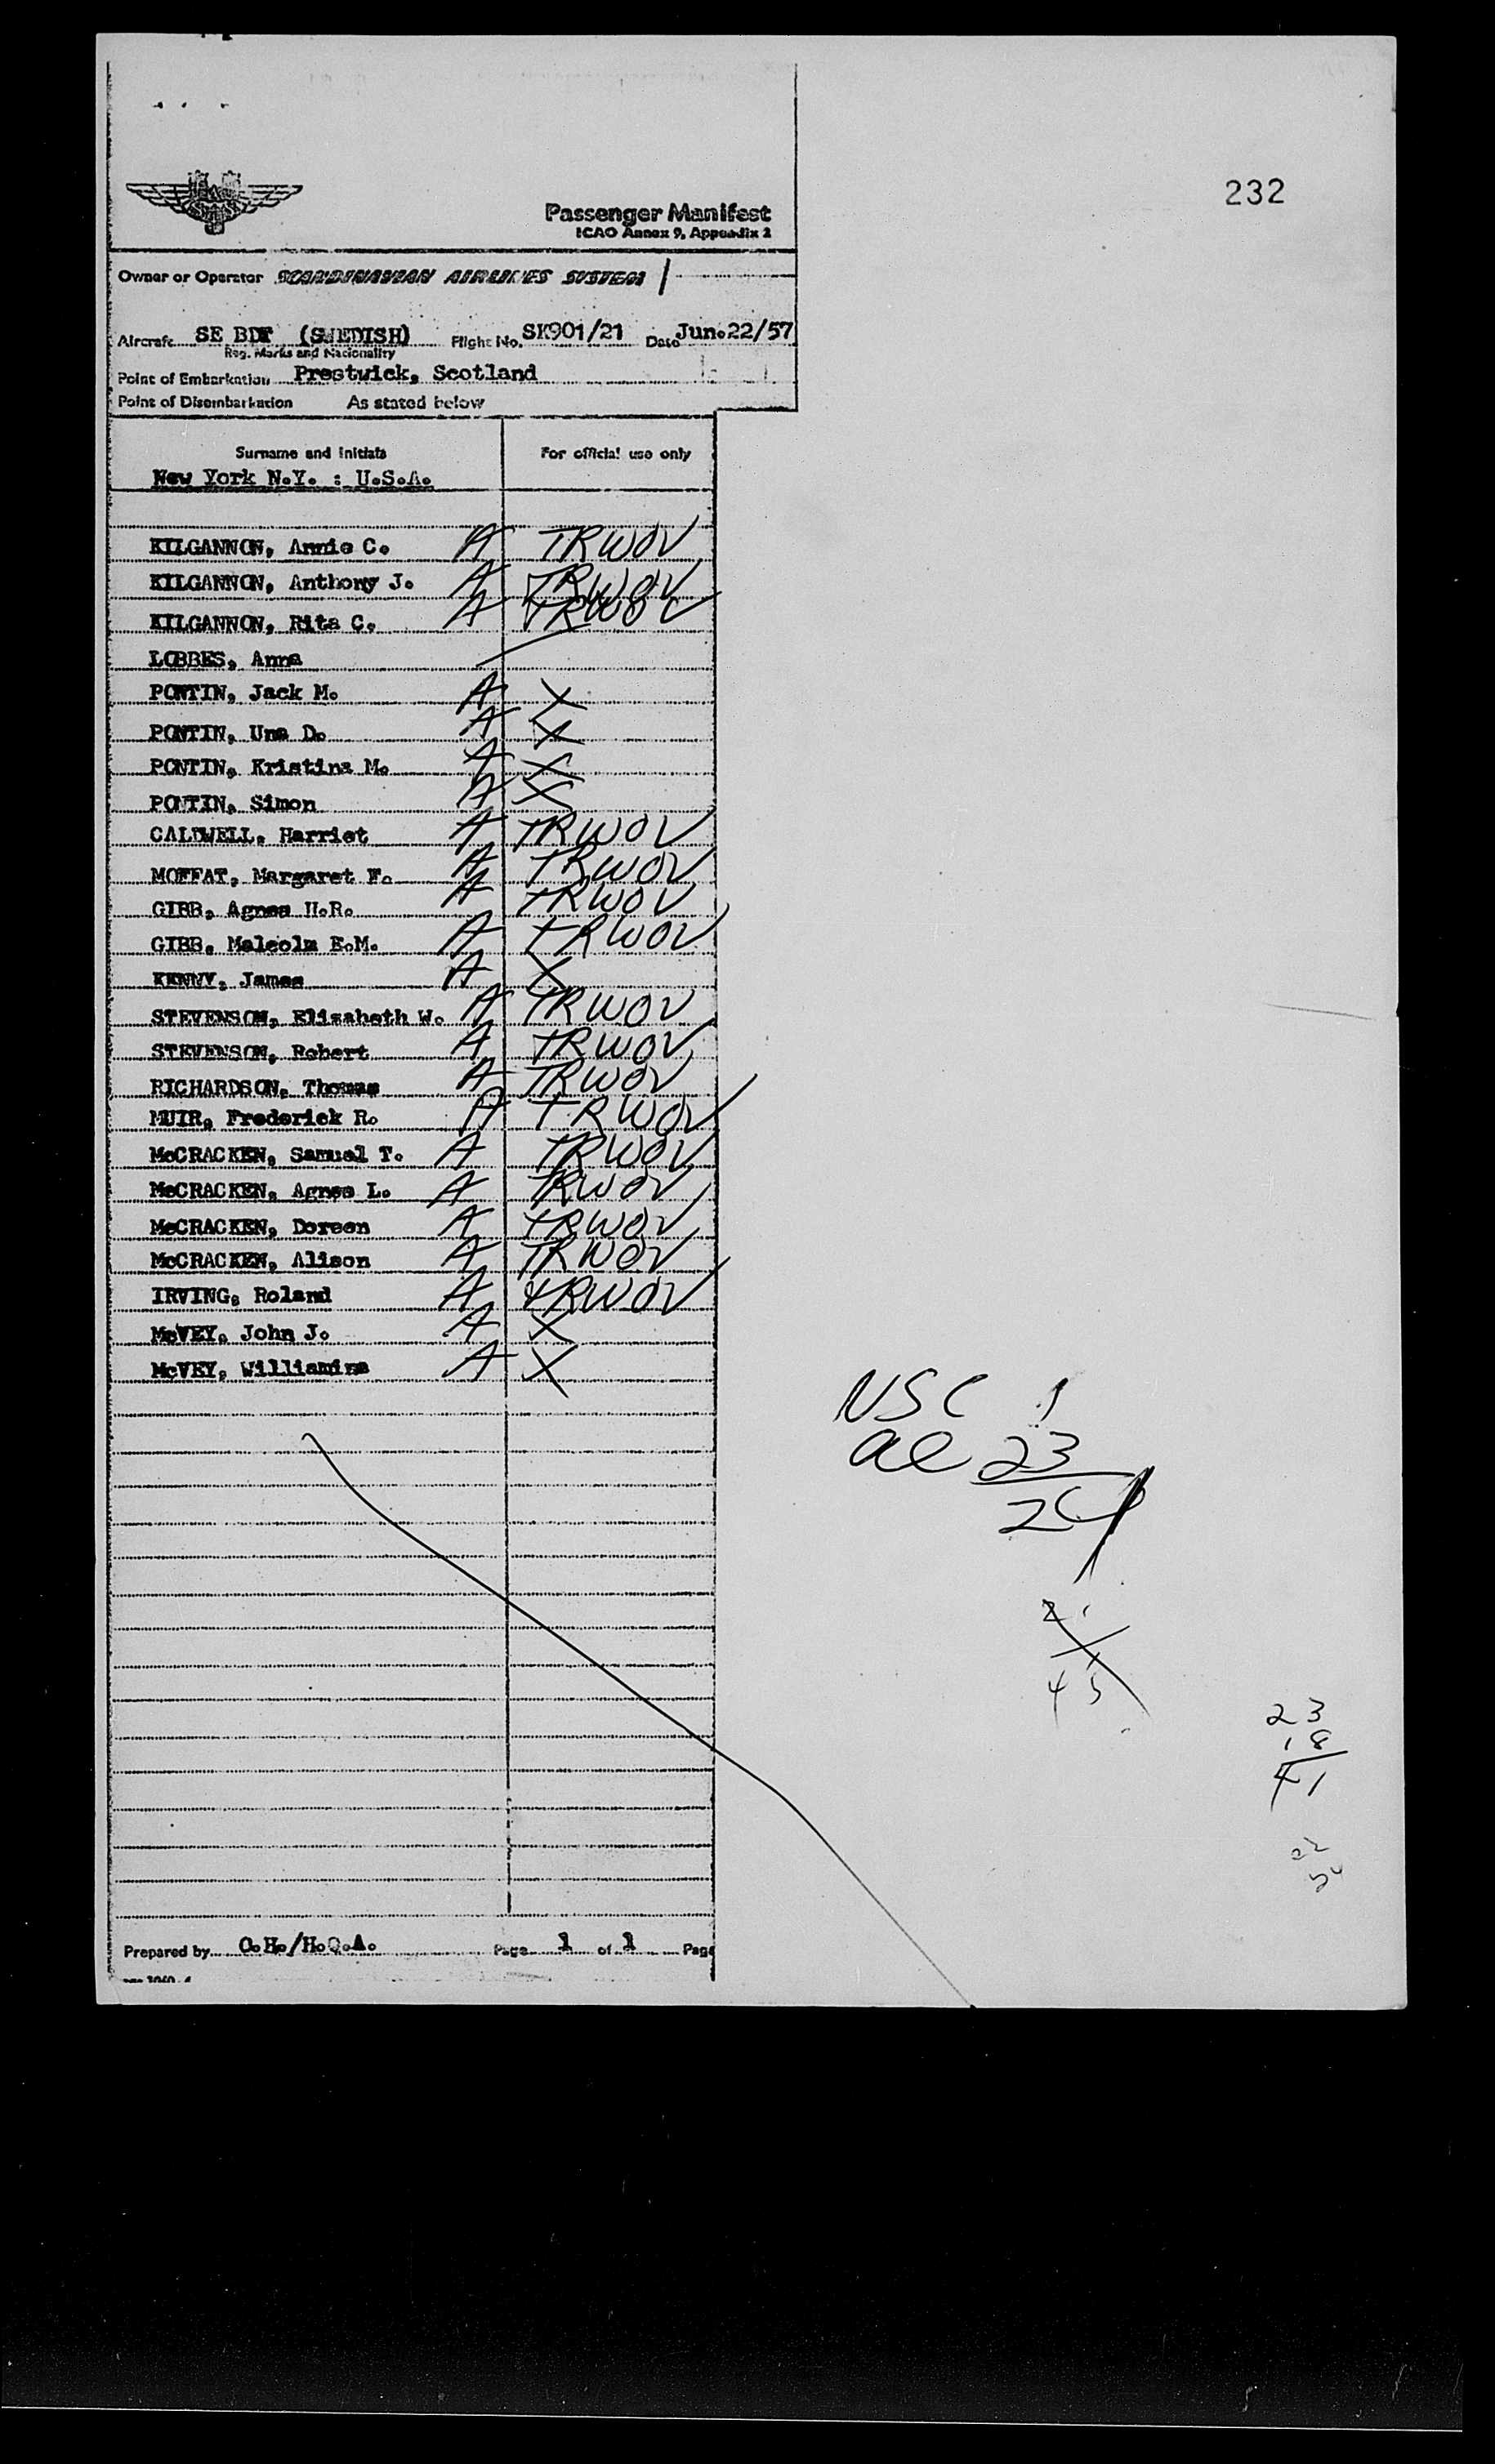 232
Passenger Manifest
ICAO Annex 9, Appendix 2
Owner or Operator SCANDINAVIAN AIRLINES SYSTEM
Aircraft SE BDT (SWEDISH) Flight No. SK901/21 Date Jun.22/57
Reg. Marks and Nationality
Point of Embarkation Prestwick, Scotland
Point of Disembarkation As stated below
Surname and Initials For official use only
New York N.Y. : U.S.A.
KILGANNON, Annie C. A TRWOV
KILGANNON, Anthony J. A TRWOV
KILGANNON, Rita C. A TRWOV
LOBBES, Anna
PONTIN, Jack M. A X
PONTIN, Una D. A X
PONTIN, Kristina M. A X
PONTIN, Simon A X
CALDWELL, Harriet A TRWOV
MOFFAT, Margaret F. A TRWOV
GIBB, Agnes H.R. A TRWOV
GIBB, Malcolm E.M. A TRWOV
KENNY, James A X
STEVENSON, Elizabeth W. A TRWOV
STEVENSON, Robert A TRWOV
RICHARDSON, Thomas A TRWOV
MUIR, Frederick R. A TRWOV
McCRACKEN, Samuel T. A TRWOV
McCRACKEN, Agnes L. A TRWOV
McCRACKEN, Doreen A TRWOV
McCRACKEN, Alison A TRWOV
IRVING, Roland A TRWOV
McVEY, John J. A X
McVEY, Williamina A X
USC 1
al 23
24
45
23
18
41
Prepared by O.H./H.Q.A. Page 1 of 1 Page